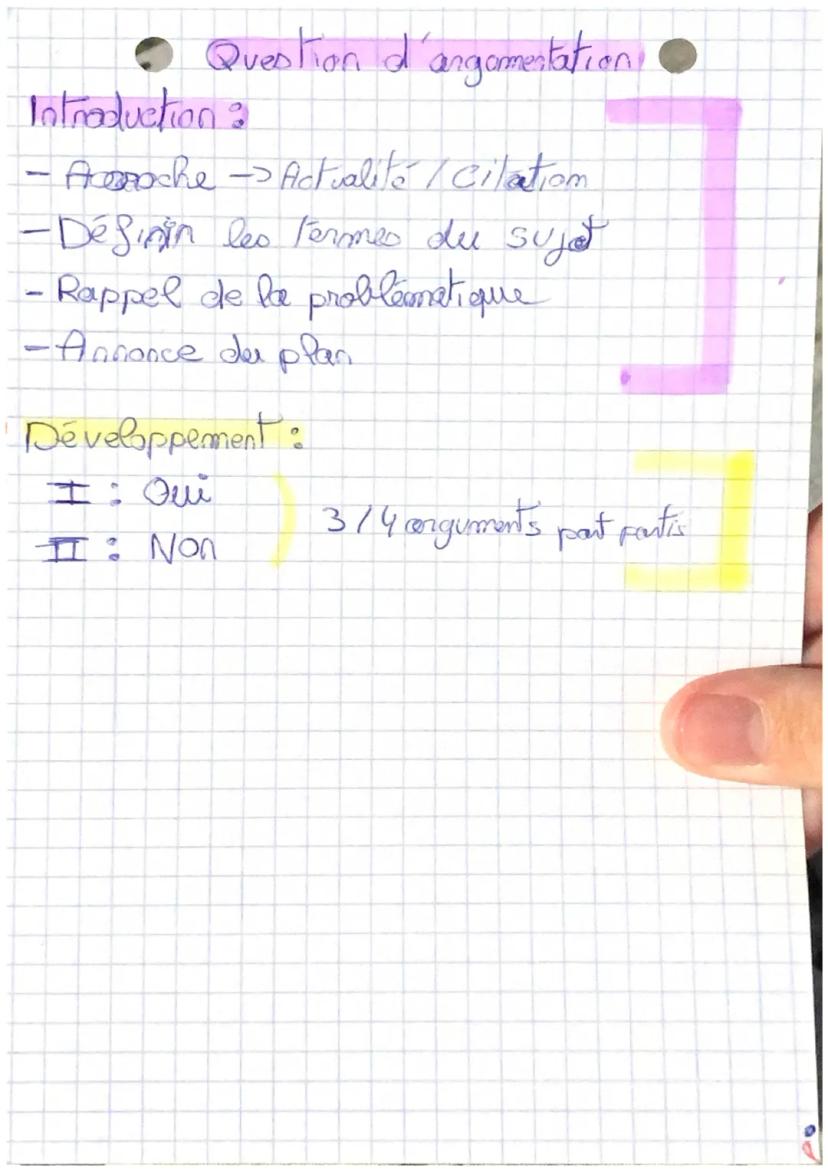 Question d'argomentation
Introduction :
- Accroche -> Actualité / Citation
- Définir les termes du sujet
- Rappel de la problématique
- Annonce du plan
Développement :
I : Oui
II : Non
3/4 arguments part partis